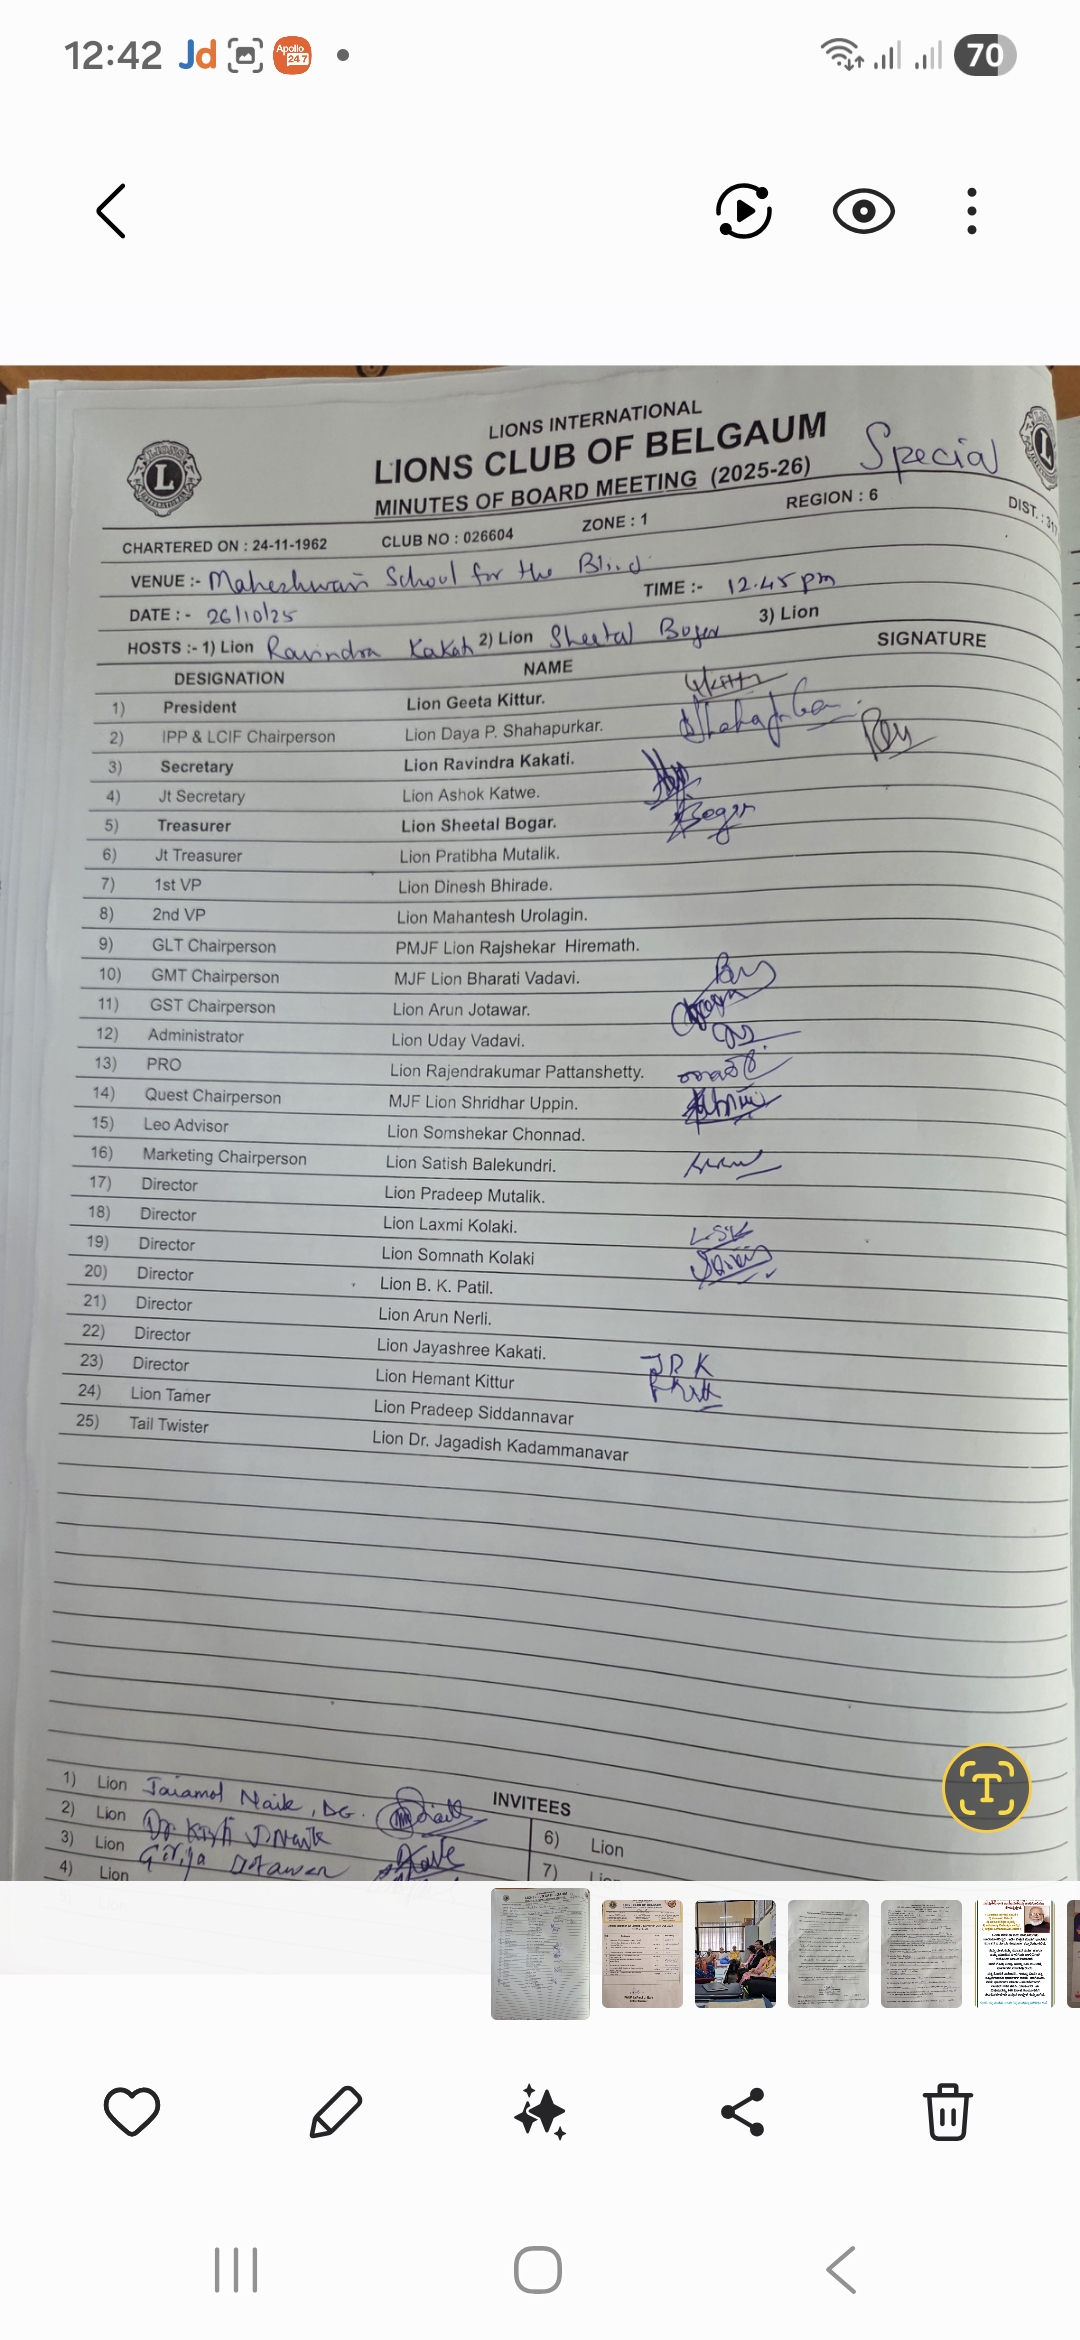 12:42 Jd Apollo 24|7 70
LIONS INTERNATIONAL
LIONS CLUB OF BELGAUM Special
MINUTES OF BOARD MEETING (2025-26)
CHARTERED ON : 24-11-1962 CLUB NO : 026604 ZONE : 1 REGION : 6 DIST. : 317
VENUE :- Maheshwari School for the Blind TIME :- 12.45 pm
DATE :- 26/10/25
HOSTS :- 1) Lion Ravindra Kakati 2) Lion Sheetal Bogar 3) Lion
DESIGNATION NAME SIGNATURE
1) President Lion Geeta Kittur.
2) IPP & LCIF Chairperson Lion Daya P. Shahapurkar.
3) Secretary Lion Ravindra Kakati.
4) Jt Secretary Lion Ashok Katwe.
5) Treasurer Lion Sheetal Bogar. Bogar
6) Jt Treasurer Lion Pratibha Mutalik.
7) 1st VP Lion Dinesh Bhirade.
8) 2nd VP Lion Mahantesh Urolagin.
9) GLT Chairperson PMJF Lion Rajshekar Hiremath.
10) GMT Chairperson MJF Lion Bharati Vadavi.
11) GST Chairperson Lion Arun Jotawar.
12) Administrator Lion Uday Vadavi.
13) PRO Lion Rajendrakumar Pattanshetty.
14) Quest Chairperson MJF Lion Shridhar Uppin.
15) Leo Advisor Lion Somshekar Chonnad.
16) Marketing Chairperson Lion Satish Balekundri.
17) Director Lion Pradeep Mutalik.
18) Director Lion Laxmi Kolaki. LSK
19) Director Lion Somnath Kolaki
20) Director Lion B. K. Patil.
21) Director Lion Arun Nerli.
22) Director Lion Jayashree Kakati. JRK
23) Director Lion Hemant Kittur
24) Lion Tamer Lion Pradeep Siddannavar
25) Tail Twister Lion Dr. Jagadish Kadammanavar
INVITEES
1) Lion Jaiamol Naik, DG.
2) Lion Dr. Naik
3) Lion Girija
4) Lion
6) Lion
7) Lion
T